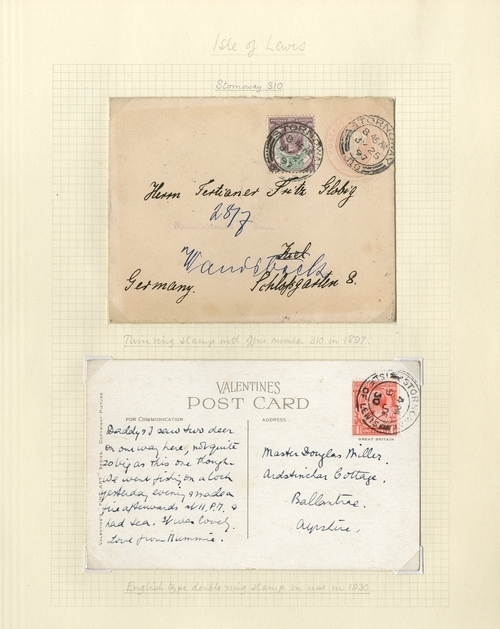 Isle of Lewis
Stornoway 310
STORNOWAY
8 45 PM
JY 25
97
310
Herrn Tertianer Fritz Globig
28/7
Kiel
Wandsbeck
Germany.
Schloßgarten 8.
Twin ring stamp with office number 310 in 1897.
VALENTINES
POST CARD
FOR COMMUNICATION.
ADDRESS
GREAT BRITAIN
STORNOWAY
ISLE OF LEWIS
30
Daddy & I saw two deer
on our way here, not quite
so big as this one though.
We went fishing on a loch
yesterday evening & made a
fire afterwards at 11 P.M. &
had tea. It was lovely.
Love from Mummie.
Master Douglas Miller,
Ardstinchar Cottage,
Ballantrae,
Ayrshire,
English type double ring stamp in use in 1930.